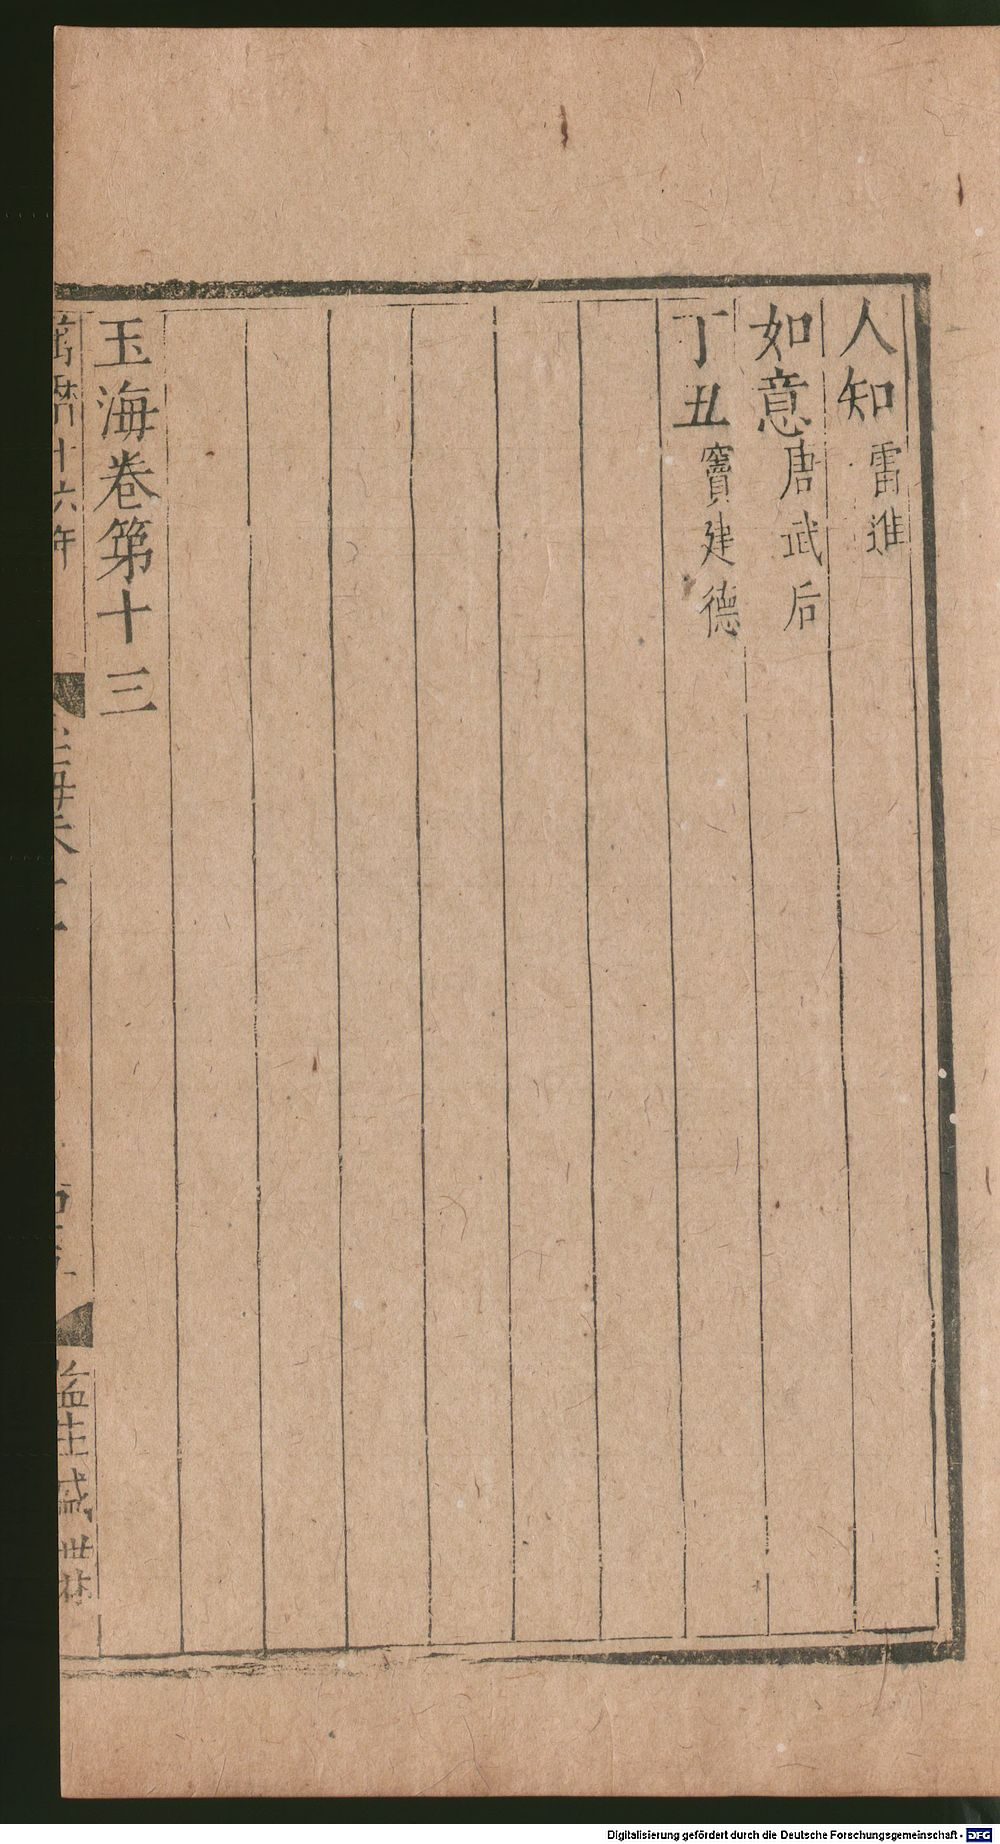 人知雷進
如意唐武后
丁丑竇建德
玉海卷第十三
萬曆十六年
監生盛世林
Digitalisierung gefördert durch die Deutsche Forschungsgemeinschaft - DFG